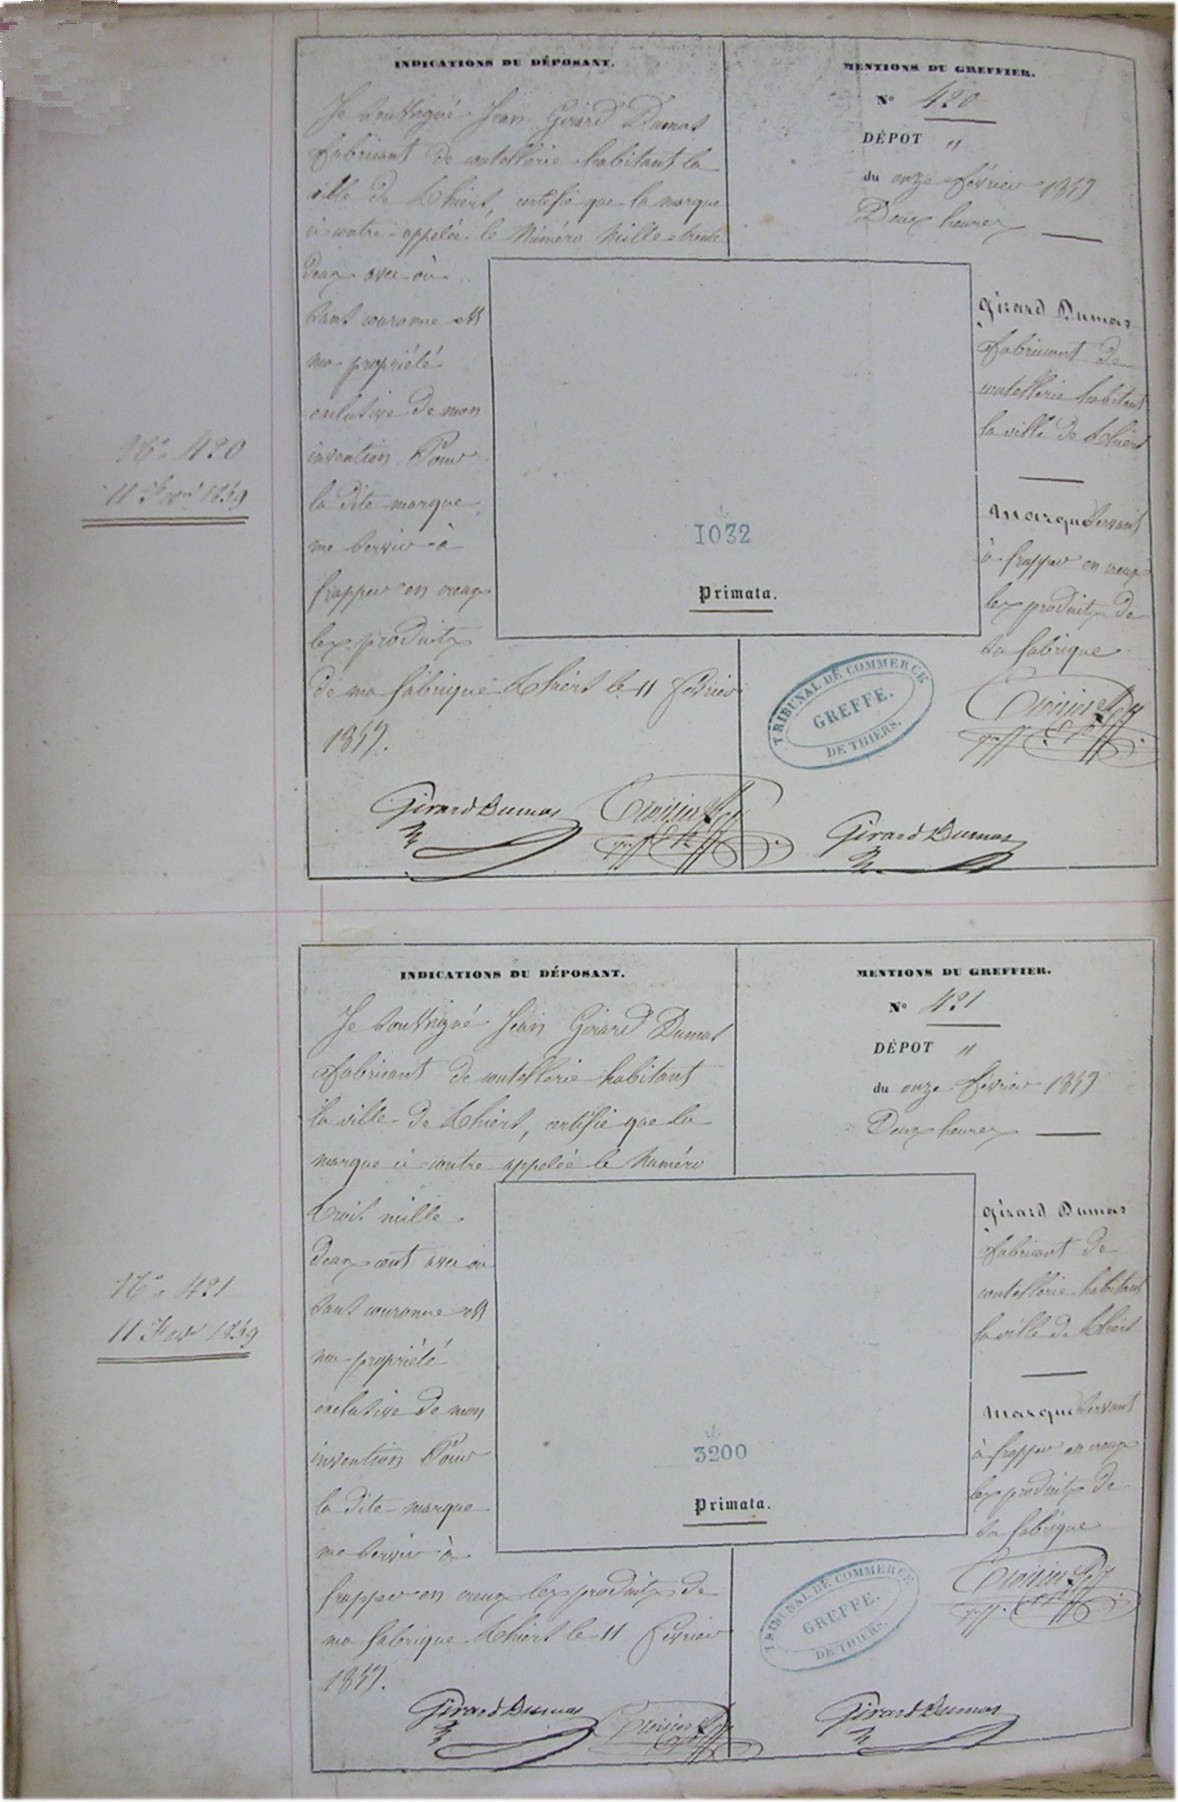 INDICATIONS DU DÉPOSANT.
Je soussigné Jean Girard Dumas
fabricant de coutellerie habitant la
ville de Thiers, certifie que la marque
ci contre appelée le Numéro Mille trente
deux avec ou
sans couronne est
ma propriété
exclusive de mon
invention Pour
la dite marque
me servir à
frapper en creux
les produits
de ma fabrique Thiers le 11 février
1859.
Girard Dumas
MENTIONS DU GREFFIER.
N° 420
DÉPOT "
du onze février 1859
Deux heures
Girard Dumas
fabricant de
coutellerie habitant
la ville de Thiers
Marque servant
à frapper en creux
les produits de
sa fabrique
Girard Dumas
N° 420
11 Fevr 1859
1032
Primata.
TRIBUNAL DE COMMERCE
GREFFE.
DE THIERS.
INDICATIONS DU DÉPOSANT.
Je soussigné Jean Girard Dumas
fabricant de coutellerie habitant
la ville de Thiers, certifie que la
marque ci contre appelée le Numéro
trois mille
deux cent avec ou
sans couronne est
ma propriété
exclusive de mon
invention Pour
la dite marque
me servir à
frapper en creux les produits de
ma fabrique Thiers le 11 février
1859.
Girard Dumas
MENTIONS DU GREFFIER.
N° 421
DÉPOT "
du onze février 1859
Deux heures
Girard Dumas
fabricant de
coutellerie habitant
la ville de Thiers
Marque servant
à frapper en creux
les produits de
sa fabrique
Girard Dumas
N° 421
11 Fevr 1859
3200
Primata.
TRIBUNAL DE COMMERCE
GREFFE.
DE THIERS.